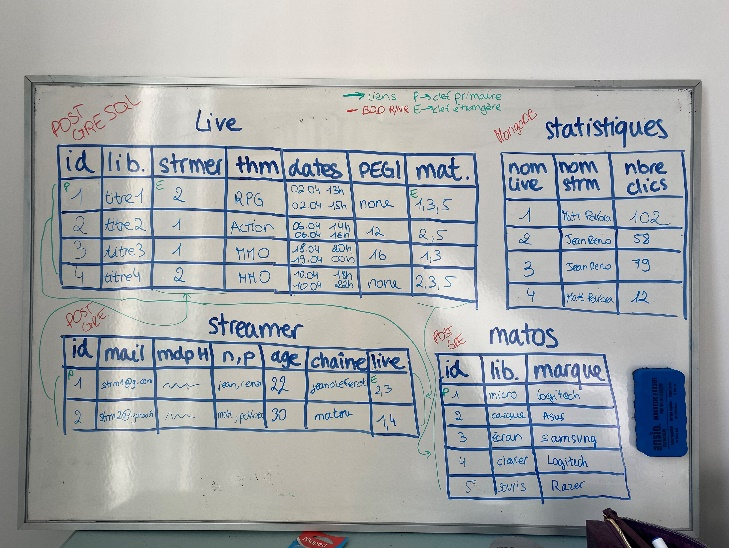 → liens P→clef primaire
- BDD E→clef étrangère
POSTGRESQL
Live
id lib. strmer thm dates PEGI mat.
P 1 titre1 E 2 RPG 02.04 13h 02.04 15h none E 1,3,5
2 titre2 1 Action 06.04 14h 06.04 16h 12 2,5
3 titre3 1 MMO 18.04 20h 19.04 00h 16 1,3
4 titre4 2 MMO 10.04 18h 10.04 22h none 2,3,5
statistiques
nom live nom strm nbre clics
1 102
2 Jean Reno 58
3 Jean Reno 79
4 12
POSTGRE
streamer
id mail mdpH n,p age chaîne live
P 1 jean,reno 22 E 2,3
2 30 matou 1,4
POSTGRE
matos
id lib. marque
P 1 micro Logitech
2 casque Asus
3 écran samsung
4 clavier Logitech
5 souris Razer